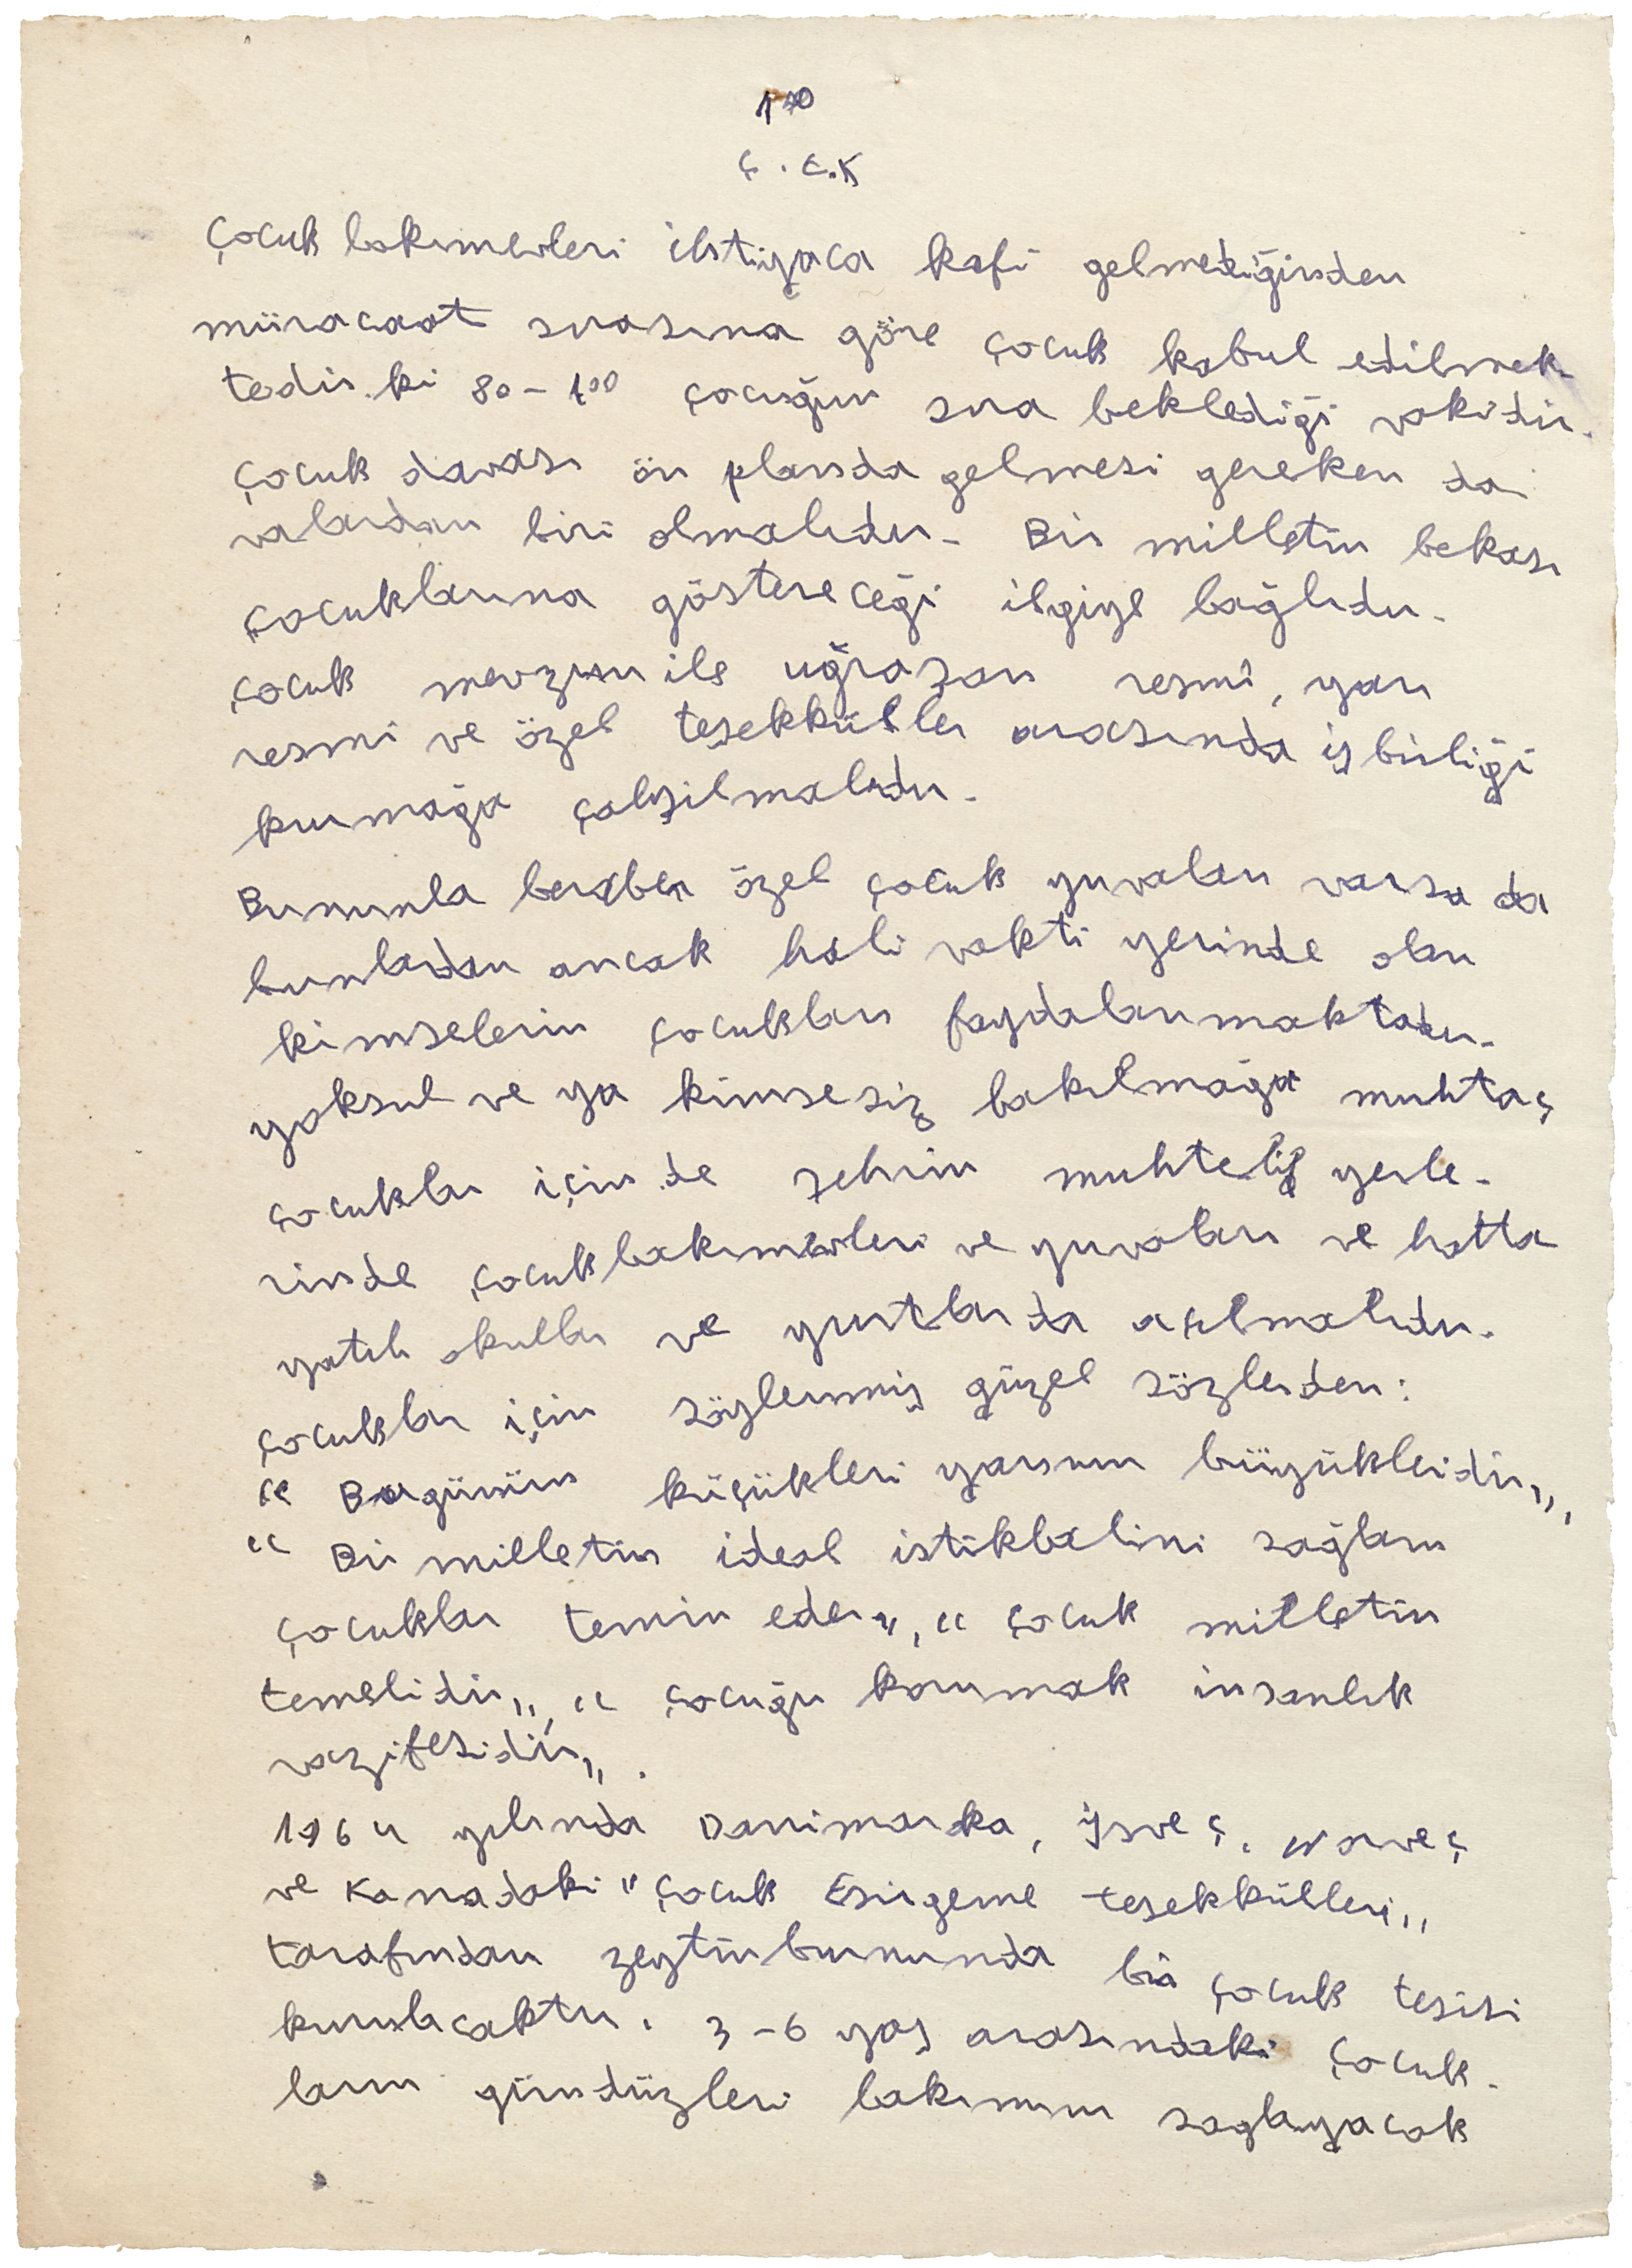 100
Ç.E.K
Çocuk bakımevleri ihtiyaca kafi gelmediğinden
müracaat sırasına göre çocuk kabul edilmek-
tedir ki 80-100 çocuğun sıra beklediği vakidir.
Çocuk davası ön planda gelmesi gereken da
valardan biri olmalıdır. Bir milletin bekası
çocuklarına göstereceği ilgiye bağlıdır.
Çocuk mevzuu ile uğraşan resmî, yarı
resmi ve özel teşekküller arasında iş birliği
kurmağa çalışılmalıdır.
Bununla beraber özel çocuk yuvaları varsa da
bunlardan ancak hali vakti yerinde olan
kimselerin çocukları faydalanmaktadır.
yoksul ve ya kimsesiz bakılmağa muhtaç
çocuklar için de şehrin muhtelif yerle-
rinde çocuk bakımevleri ve yuvaları ve hatta
yatılı okullar ve yurtlar da açılmalıdır.
Çocuklar için söylenmiş güzel sözlerden:
“ Bugünün küçükleri yarının büyükleridir„,
“ Bir milletin ideal istikbalini sağlam
çocuklar temin eder„, “ Çocuk milletin
temelidir„, “ Çocuğu korumak insanlık
vazifesidir„.
1964 yılında Danimarka, İsveç, Norveç
ve Kanadaki "Çocuk Esirgeme teşekkülleri„
tarafından zeytinburnunda bir çocuk tesisi
kurulacaktır. 3-6 yaş arasındaki çocuk-
ların gündüzleri bakımını saglayacak